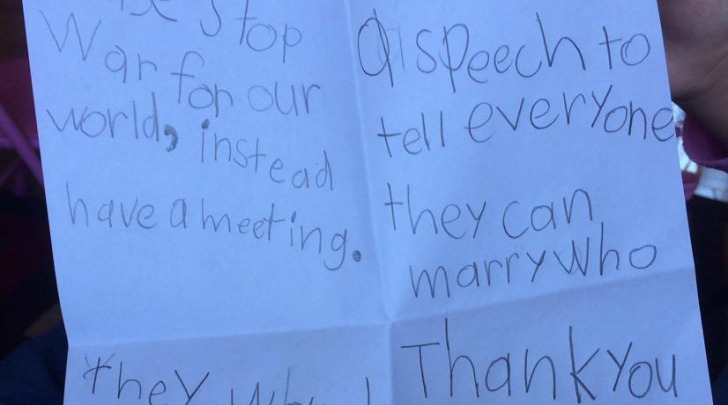 Stop
War for our
world, instead
have a meeting.
they
a speech to
tell everyone
they can
marry who
Thank you